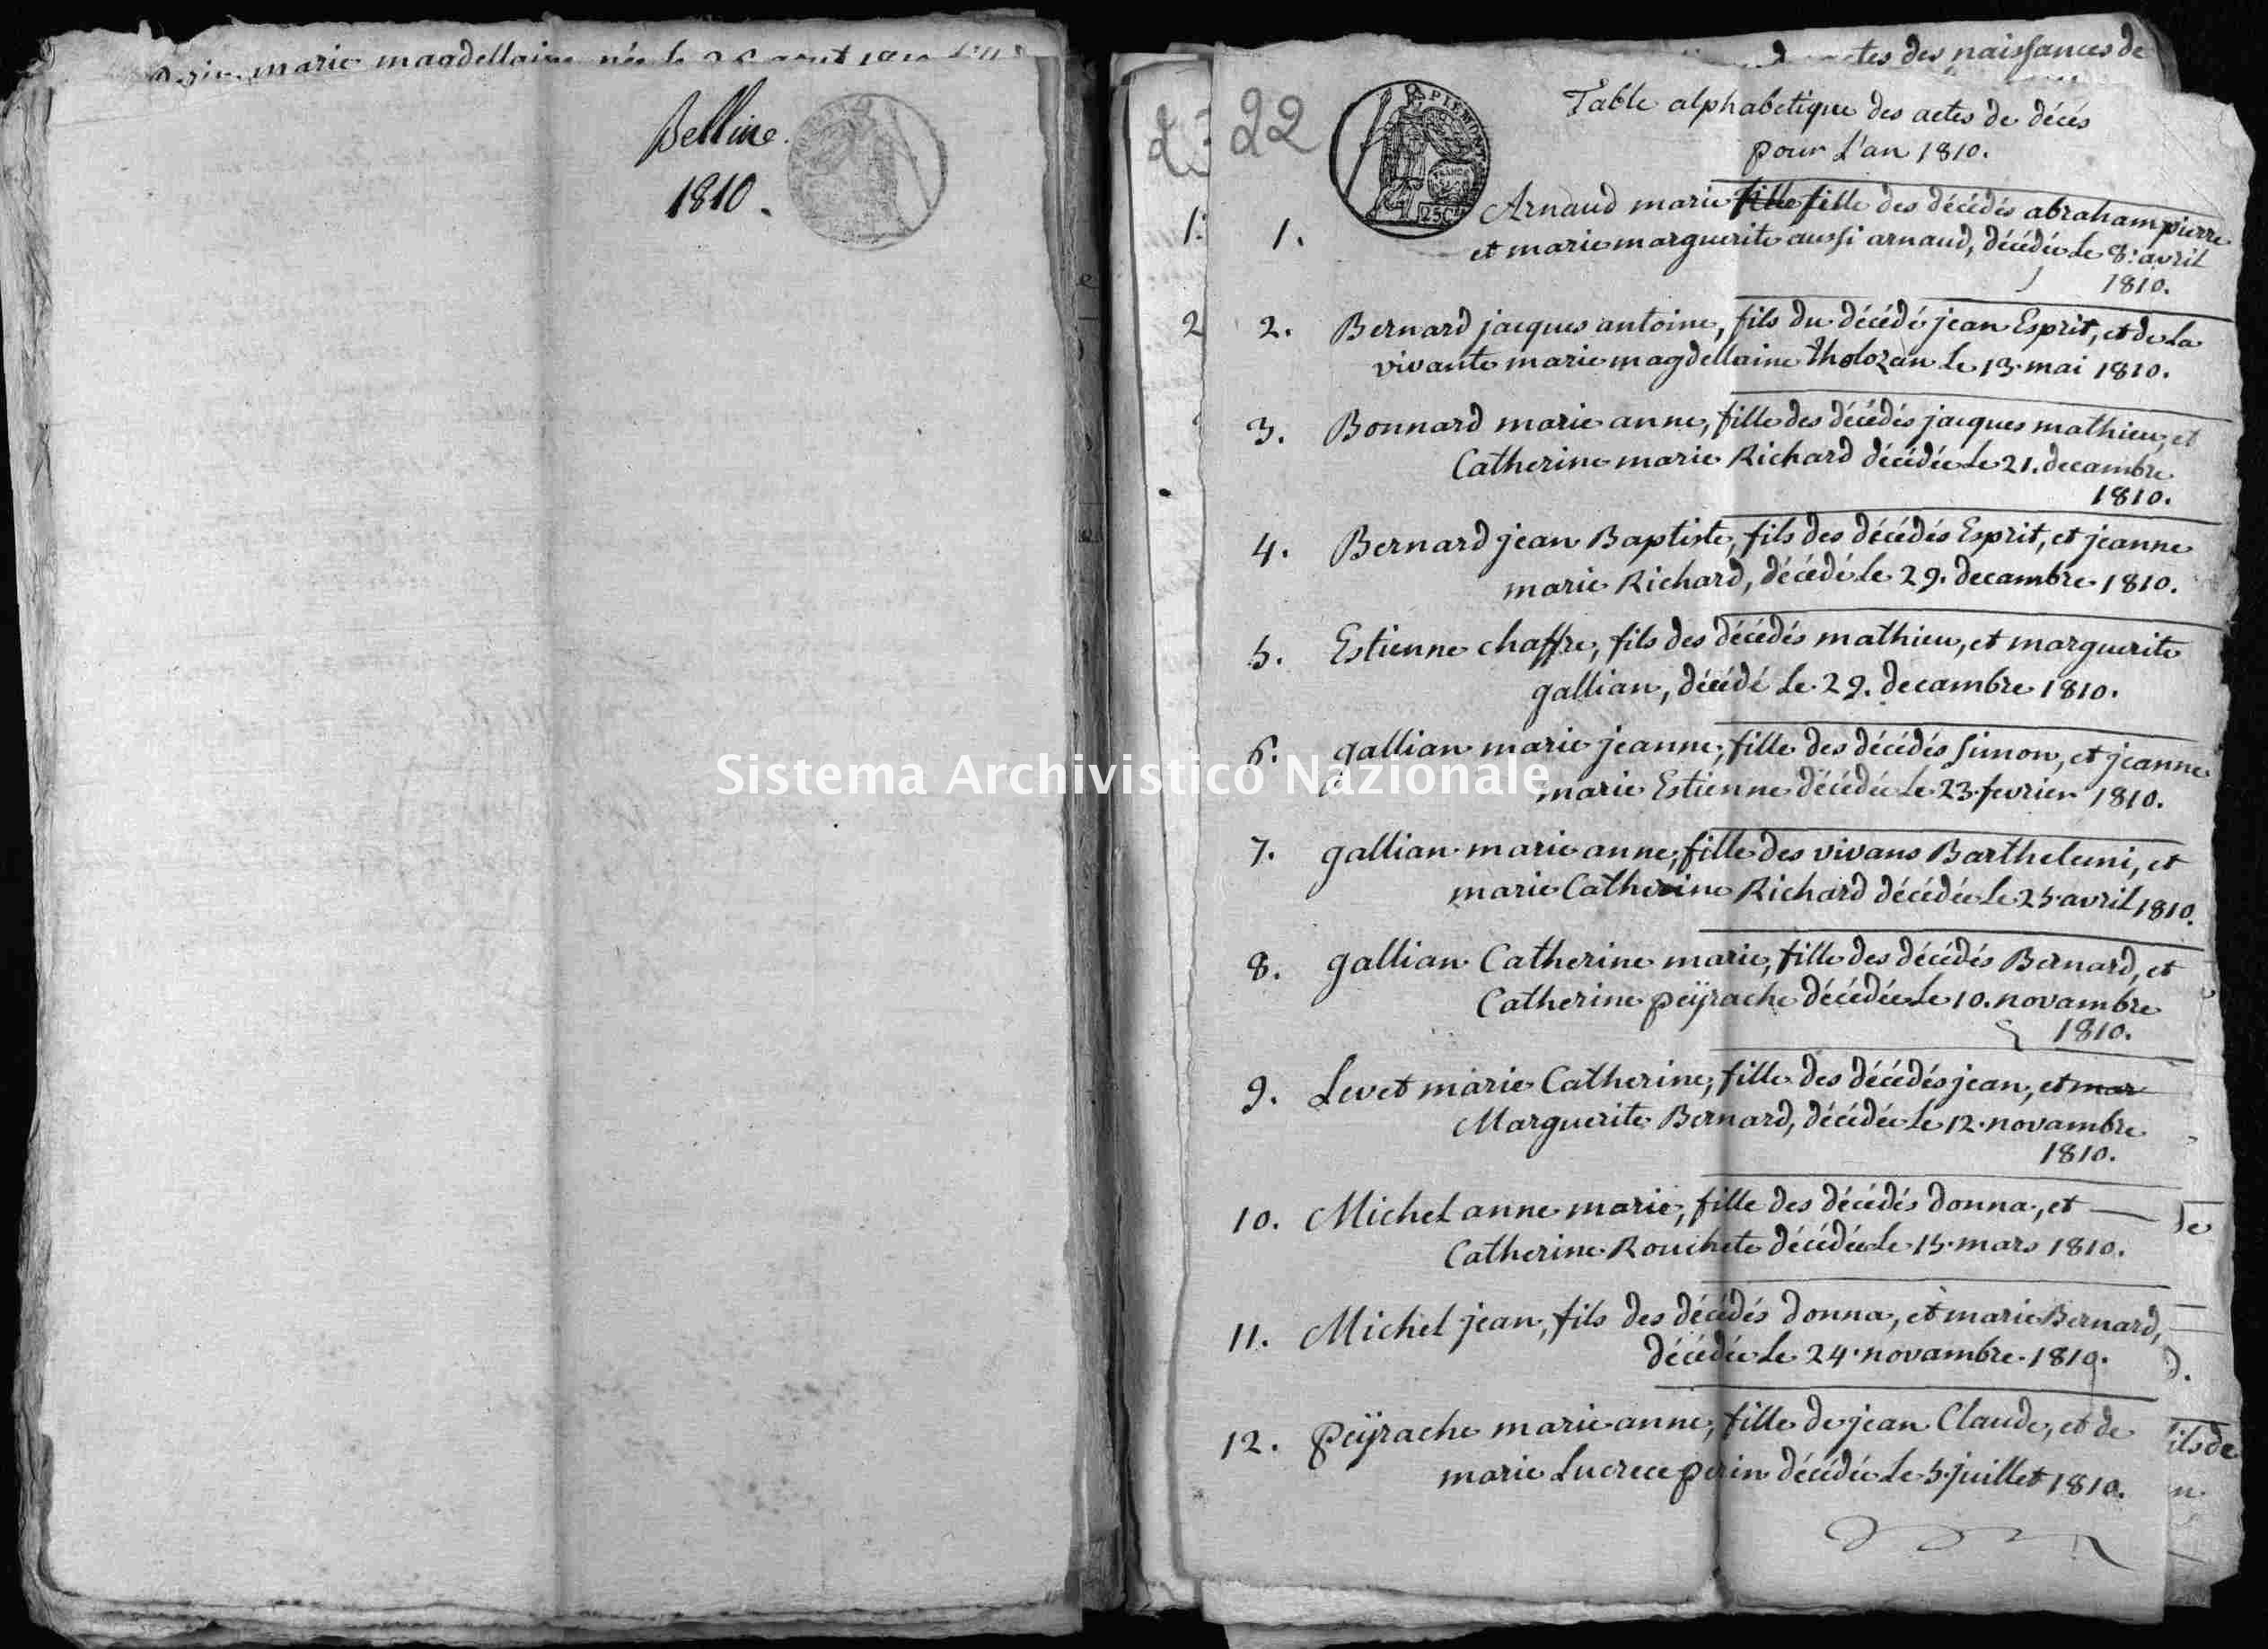 marie magdellaine née le 26 aout 1810
Belline.
1810.
actes des naissances de
22
PIEMONT
25C
Table alphabetique des actes de décés
pour L'an 1810.
1. Arnaud marie fille fille des décédés abraham pierre
et marie marguerite aussi arnaud, décédée Le 8: avril
1810.
2. Bernard jacques antoine, fils du décédé jean Esprit, et de La
vivante marie magdellaine tholozan Le 13. mai 1810.
3. Bonnard marie anne, fille des décédés jacques mathieu, et
Catherine marie Richard décédée Le 21. decambre
1810.
4. Bernard jean Baptiste, fils des décédés Esprit, et jeanne
marie Richard, décédé Le 29. decambre 1810.
5. Estienne chaffre, fils des décédés mathieu, et marguerite
gallian, décédé Le 29. decambre 1810.
6. gallian marie jeanne, fille des décédés Simon, et jeanne
Sistema Archivistico Nazionale
marie Estienne décédée Le 23. fevrier 1810.
7. gallian marie anne, fille des vivans Barthelemi, et
marie Catherine Richard décédée Le 25. avril 1810.
8. gallian Catherine marie, fille des décédés Bernard, et
Catherine peÿrache décédée Le 10. novambre
1810.
9. Levet marie Catherine, fille des décédés jean, et mar
Marguerite Bernard, décédée Le 12. novambre
1810.
10. Michel anne marie, fille des décédés donna, et
Catherine Rouchete décédée Le 15. mars 1810.
11. Michel jean, fils des décédés donna, et marie Bernard,
décédée Le 24. novambre 1810.
12. peÿrache marie anne, fille de jean Claude, et de
marie Lucrece perin décédée Le 5. juillet 1810.